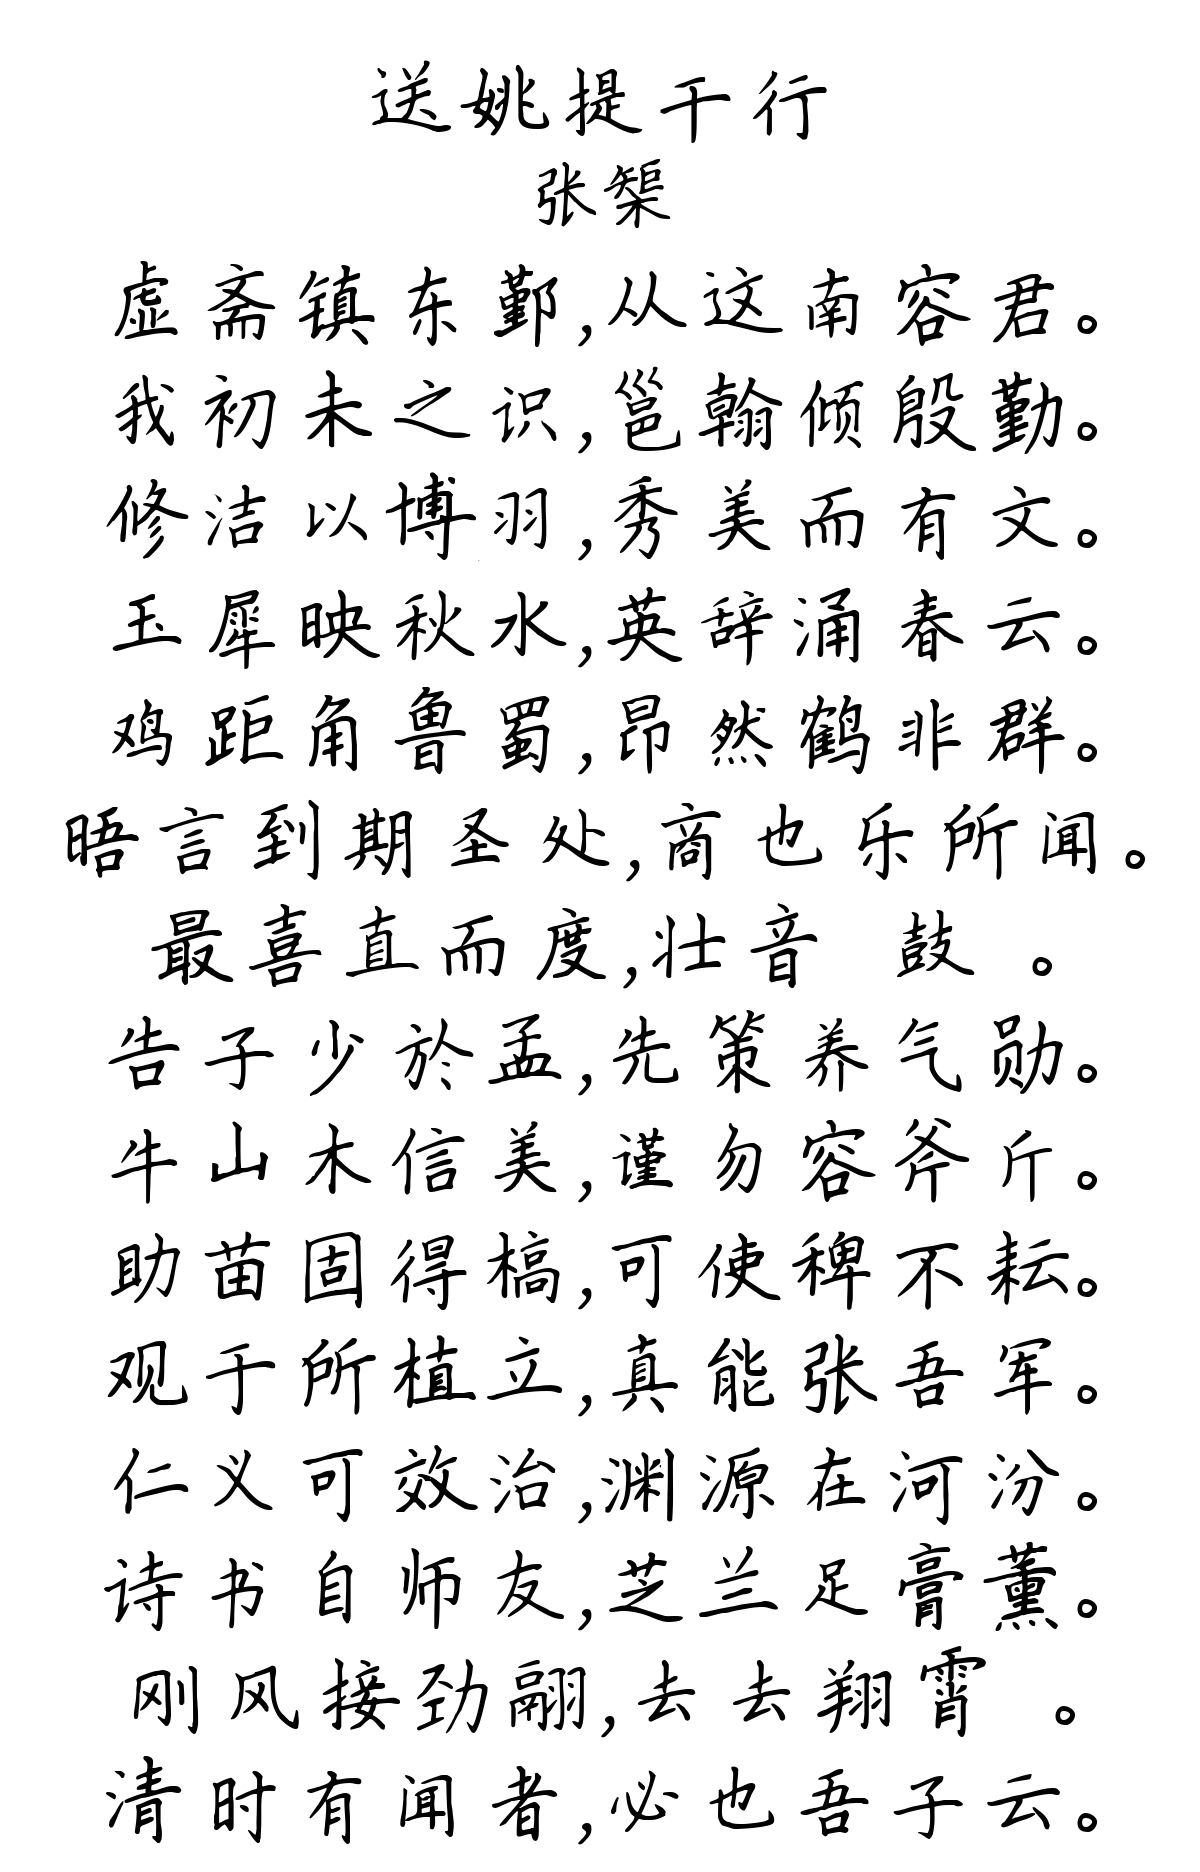 送姚提干行
张榘
虚斋镇东鄞,从这南容君。
我初未之识,邕翰倾殷勤。
修洁以博羽,秀美而有文。
玉犀映秋水,英辞涌春云。
鸡距角鲁蜀,昂然鹤非群。
晤言到期圣处,商也乐所闻。
最喜直而度,壮音 鼓 。
告子少於孟,先策养气勋。
牛山木信美,谨勿容斧斤。
助苗固得槁,可使稗不耘。
观于所植立,真能张吾军。
仁义可效治,渊源在河汾。
诗书自师友,芝兰足膏薰。
刚风接劲翮,去去翔霄 。
清时有闻者,必也吾子云。